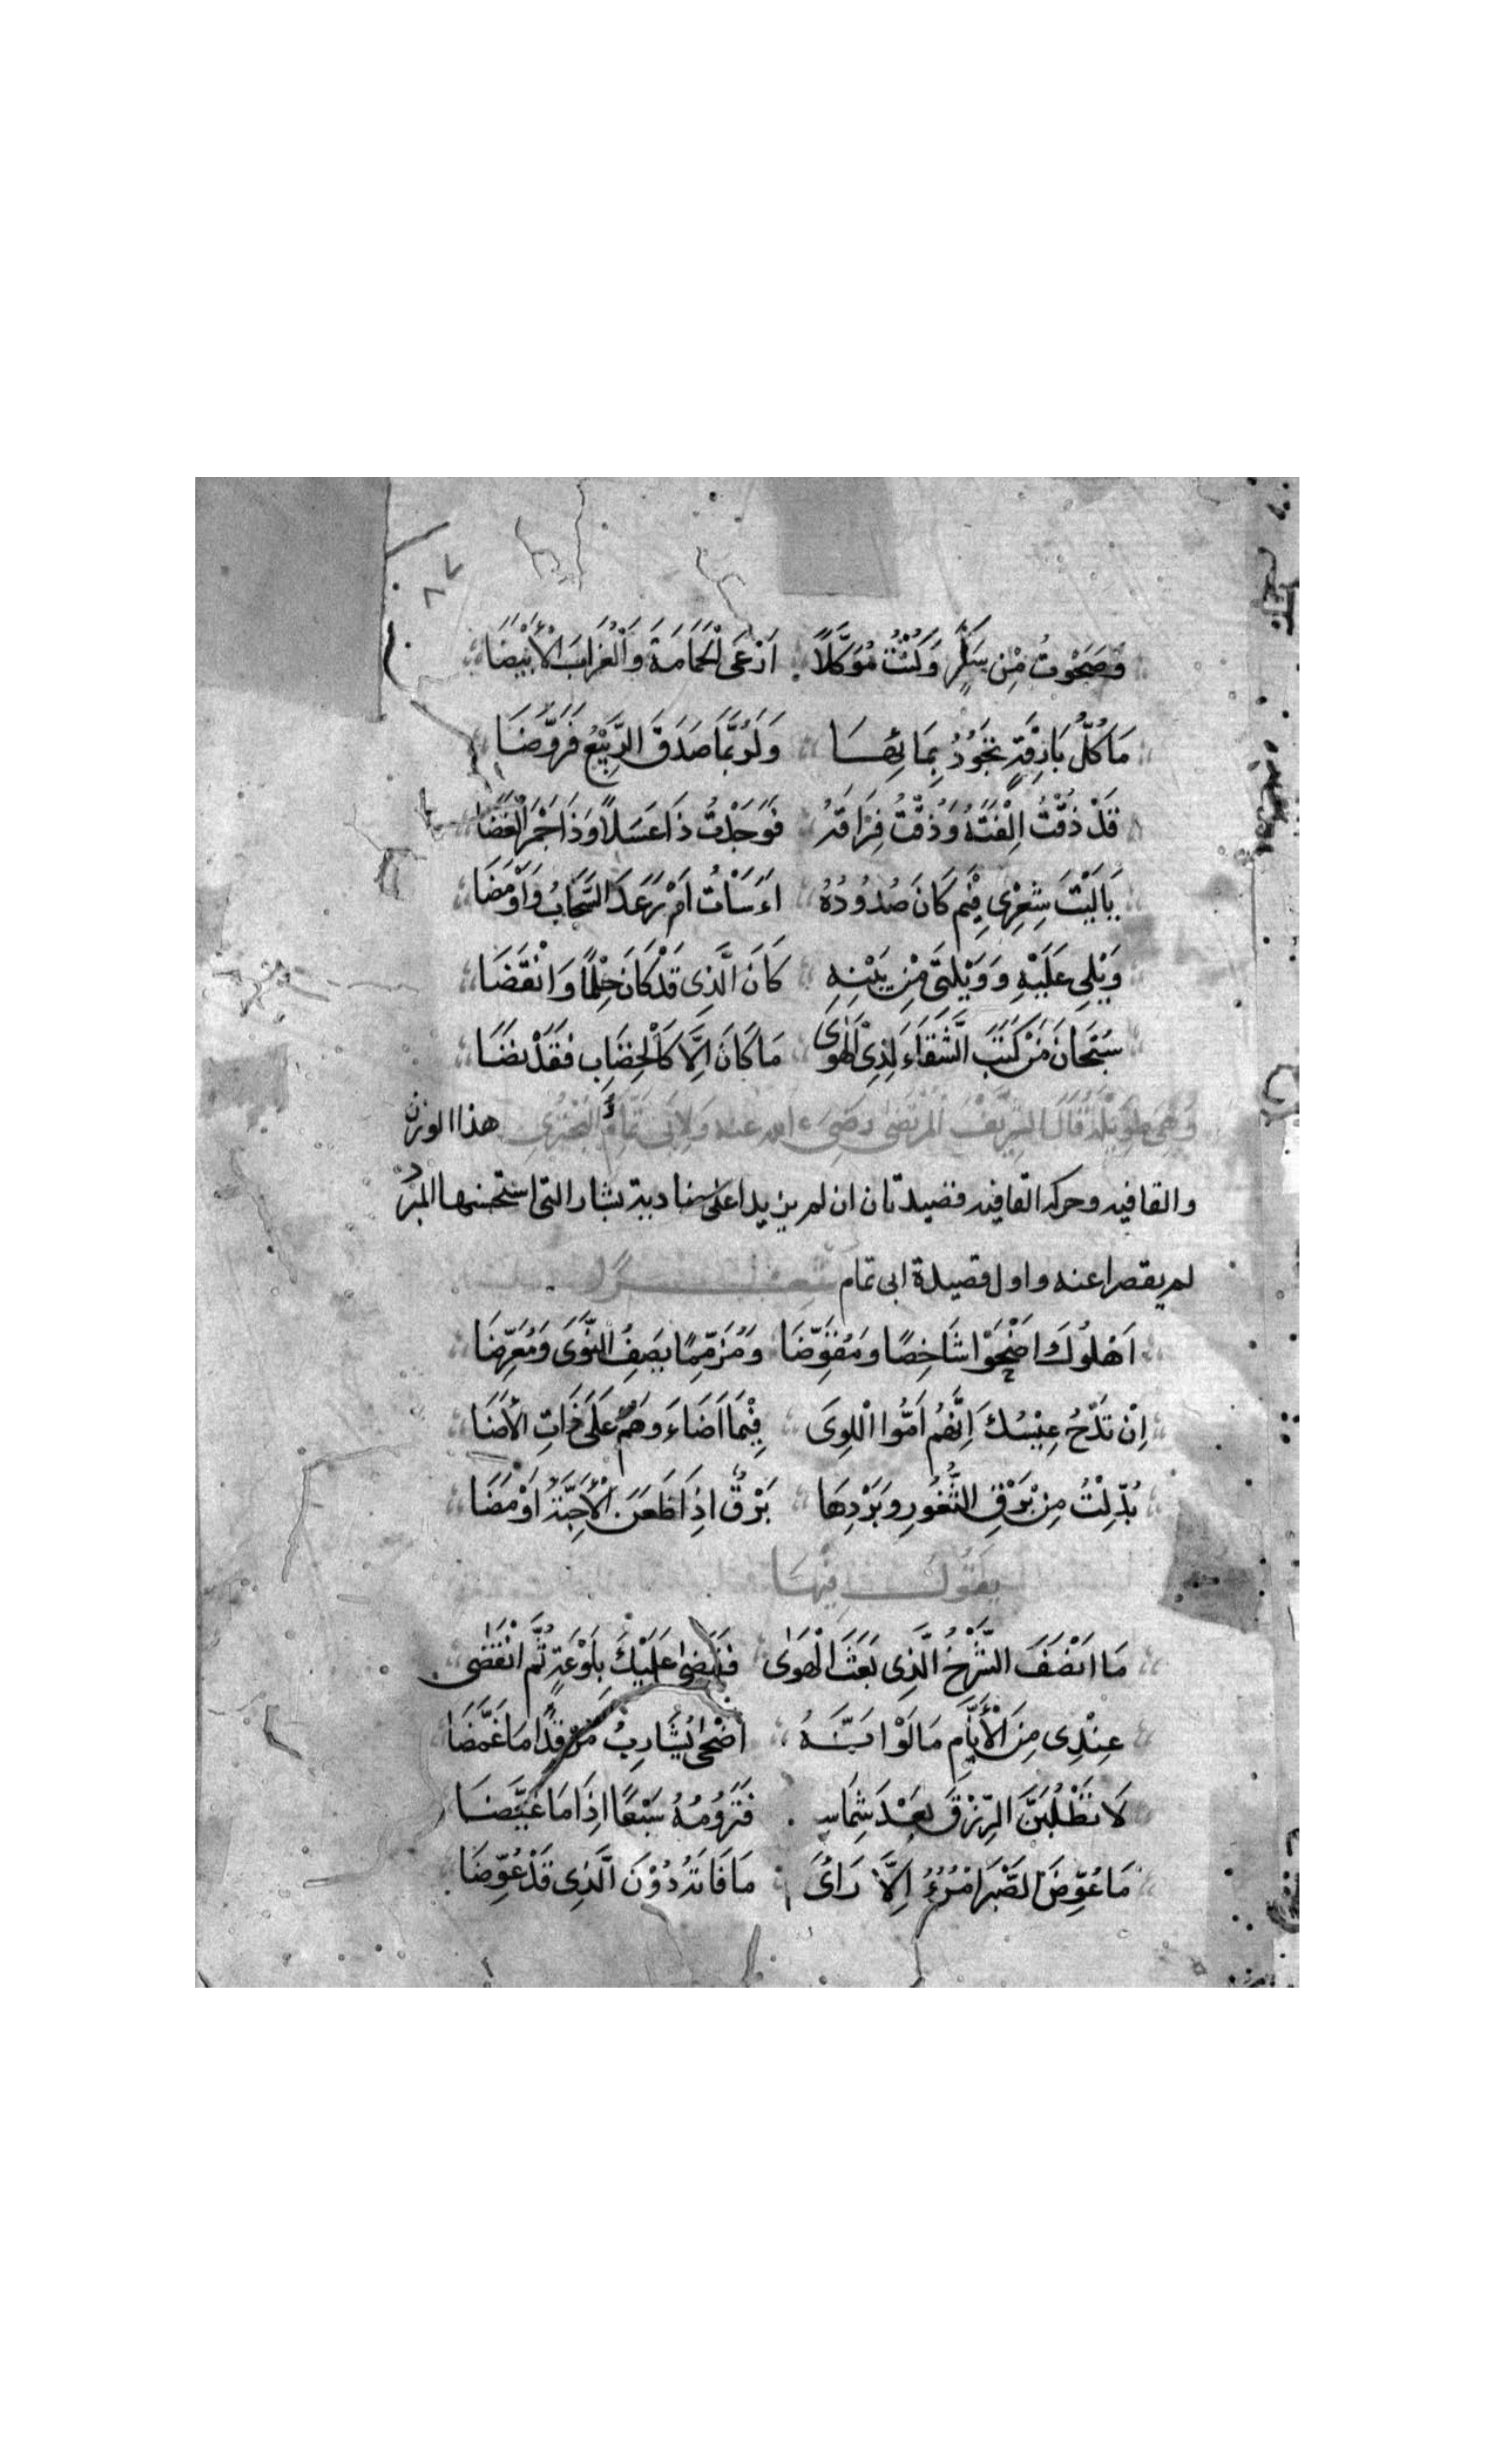 ٨٧
وَصَحَوْتُ مِنْ سَكَرٍ وَكُنْتُ مُوَكَّلًا اَرْعَى الْحَمَامَةَ وَالْغُرَابَ الْأَبْيَضَا
مَا كُلُّ بَارِقَةٍ تَجُوْدُ بِمَائِهَا وَلَرُبَّمَا صَدَقَ الرَّبِيْعُ فَرَوَّضَا
قَدْ ذُقْتُ اِلْفَتَهُ وَذُقْتُ فِرَاقَهُ فَوَجَدْتُ ذَا عَسَلًا وَذَا جَمْرَ الْغَضَا
يَا لَيْتَ شِعْرِى فِيْمَ كَانَ صُدُوْدُهُ اَءَسَأْتُ اَمْ رَعَدَ السَّحَابُ وَاَوْمَضَا
وَيْلِى عَلَيْهِ وَوَيْلَتِى مِنْ بَيْنِهِ كَانَ الَّذِى قَدْ كَانَ حِلْمًا وَانْقَضَا
سُبْحَانَ مَنْ كَتَبَ الشَّقَاءَ لِذِى الْهَوَى مَا كَانَ اِلَّا كَالْخِضَابِ فَقَدْ نَضَا
وَهِىَ طَوِيْلَة قَالَ الشَّرِيْفُ الْمُرْتَضَى رضى الله عنه وَلِاَبِى تَمَّام وَالْبُحْتُرِى هذا الوزن
والقافيه وحركه القافيه قصيدتان ان لم يزيدا على ضاديه بشار التى استحسنها المبرد
لم يقصرا عنه واول قصيدة ابى تمام شعر
اَهْلُوكَ اَضْحَوْا شَاخِصًا وَمُقَوِّضَا وَمُزَمِّمًا يَصِفُ النَّوَى وَمُغَرِّضَا
اِنْ تَدْجُ عِيْسُكَ اَنَّهُمْ اَمُّوا اللِّوَى فِيْمَا اَضَاءَ وَهُمْ عَلَى ذَاتِ الْأَضَا
بُدِّلْتُ مِنْ بَرْقِ الثُّغُورِ وَبَرْدِهَا بَرْقٌ اِذَا ظَعَنَ الْأَحِبَّةُ اَوْمَضَا
يَقُوْلُ فِيْهَا
مَا اَنْصَفَ الشَّرْخُ الَّذِى بَعَثَ الْهَوَى فَقَضَى عَلَيْكَ بِلَوْعَةٍ ثُمَّ انْقَضَى
عِنْدِى مِنَ الْأَيَّامِ مَا لَوْ اَنَّهُ اَضْحَى بِشَارِبِ مُرْقِدٍ مَا غَمَّضَا
لَا تَطْلُبَنَّ الرِّزْقَ بَعْدَ شِمَاسِهِ فَتَرُوْمُهُ سَبُعًا اِذَا مَا غَيَّضَا
مَا عُوِّضَ الصَّبْرَ امْرُؤٌ اِلَّا رَاَى مَا فَاتَهُ دُوْنَ الَّذِى قَدْ عُوِّضَا